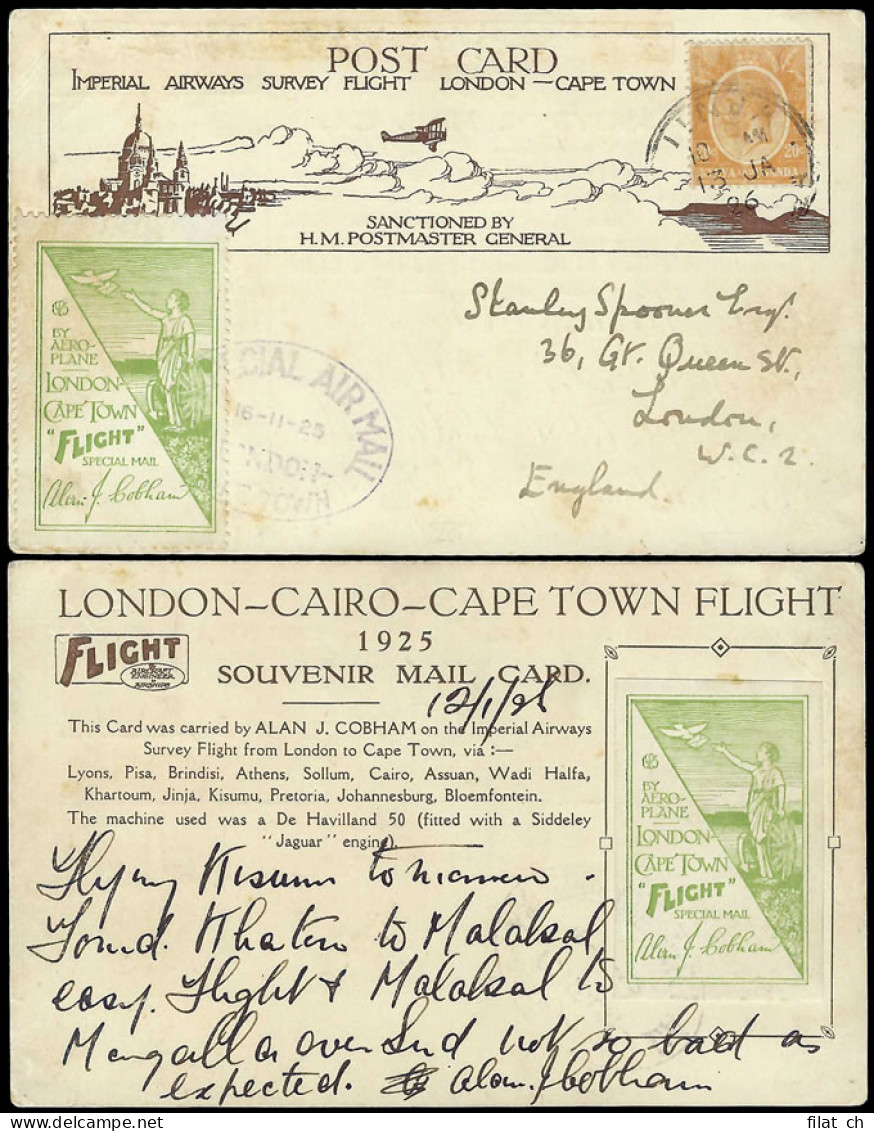 POST CARD
IMPERIAL AIRWAYS SURVEY FLIGHT LONDON — CAPE TOWN
SANCTIONED BY
H.M. POSTMASTER GENERAL
20
10 AM
13 JA
26
BY
AERO-
PLANE
LONDON-
CAPE TOWN
"FLIGHT"
SPECIAL MAIL
Alan J. Cobham
CIAL AIR MAIL
16-11-25
NDON-
TOWN
Stanley Spooner Esq.
36, Gt. Queen St.,
London,
W.C.2.
England.
LONDON—CAIRO—CAPE TOWN FLIGHT
1925
FLIGHT
& AIRCRAFT ENGINEER & AIRSHIPS
SOUVENIR MAIL CARD.
12/1/26
This Card was carried by ALAN J. COBHAM on the Imperial Airways
Survey Flight from London to Cape Town, via :—
Lyons, Pisa, Brindisi, Athens, Sollum, Cairo, Assuan, Wadi Halfa,
Khartoum, Jinja, Kisumu, Pretoria, Johannesburg, Bloemfontein.
The machine used was a De Havilland 50 (fitted with a Siddeley
"Jaguar" engine).
BY
AERO-
PLANE
LONDON-
CAPE TOWN
"FLIGHT"
SPECIAL MAIL
Alan J. Cobham
Flying Kisumu tomorrow.
Found Khatoum to Malakal
easy flight & Malakal to
Mongalla over Sud not so bad as
expected. Alan J Cobham
filat ch